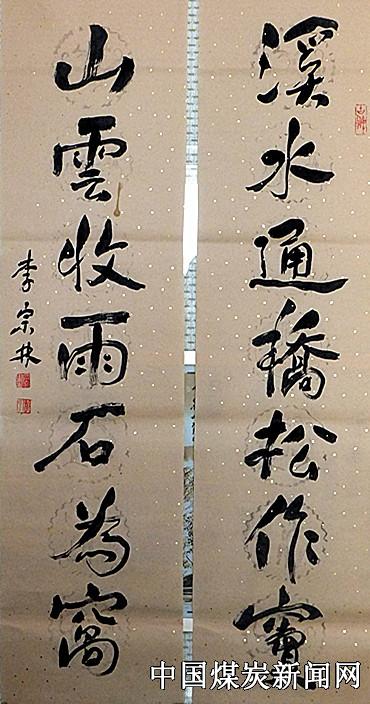 溪水通橋松作
山雲收雨石為窩
李宗林
中国煤炭新闻网